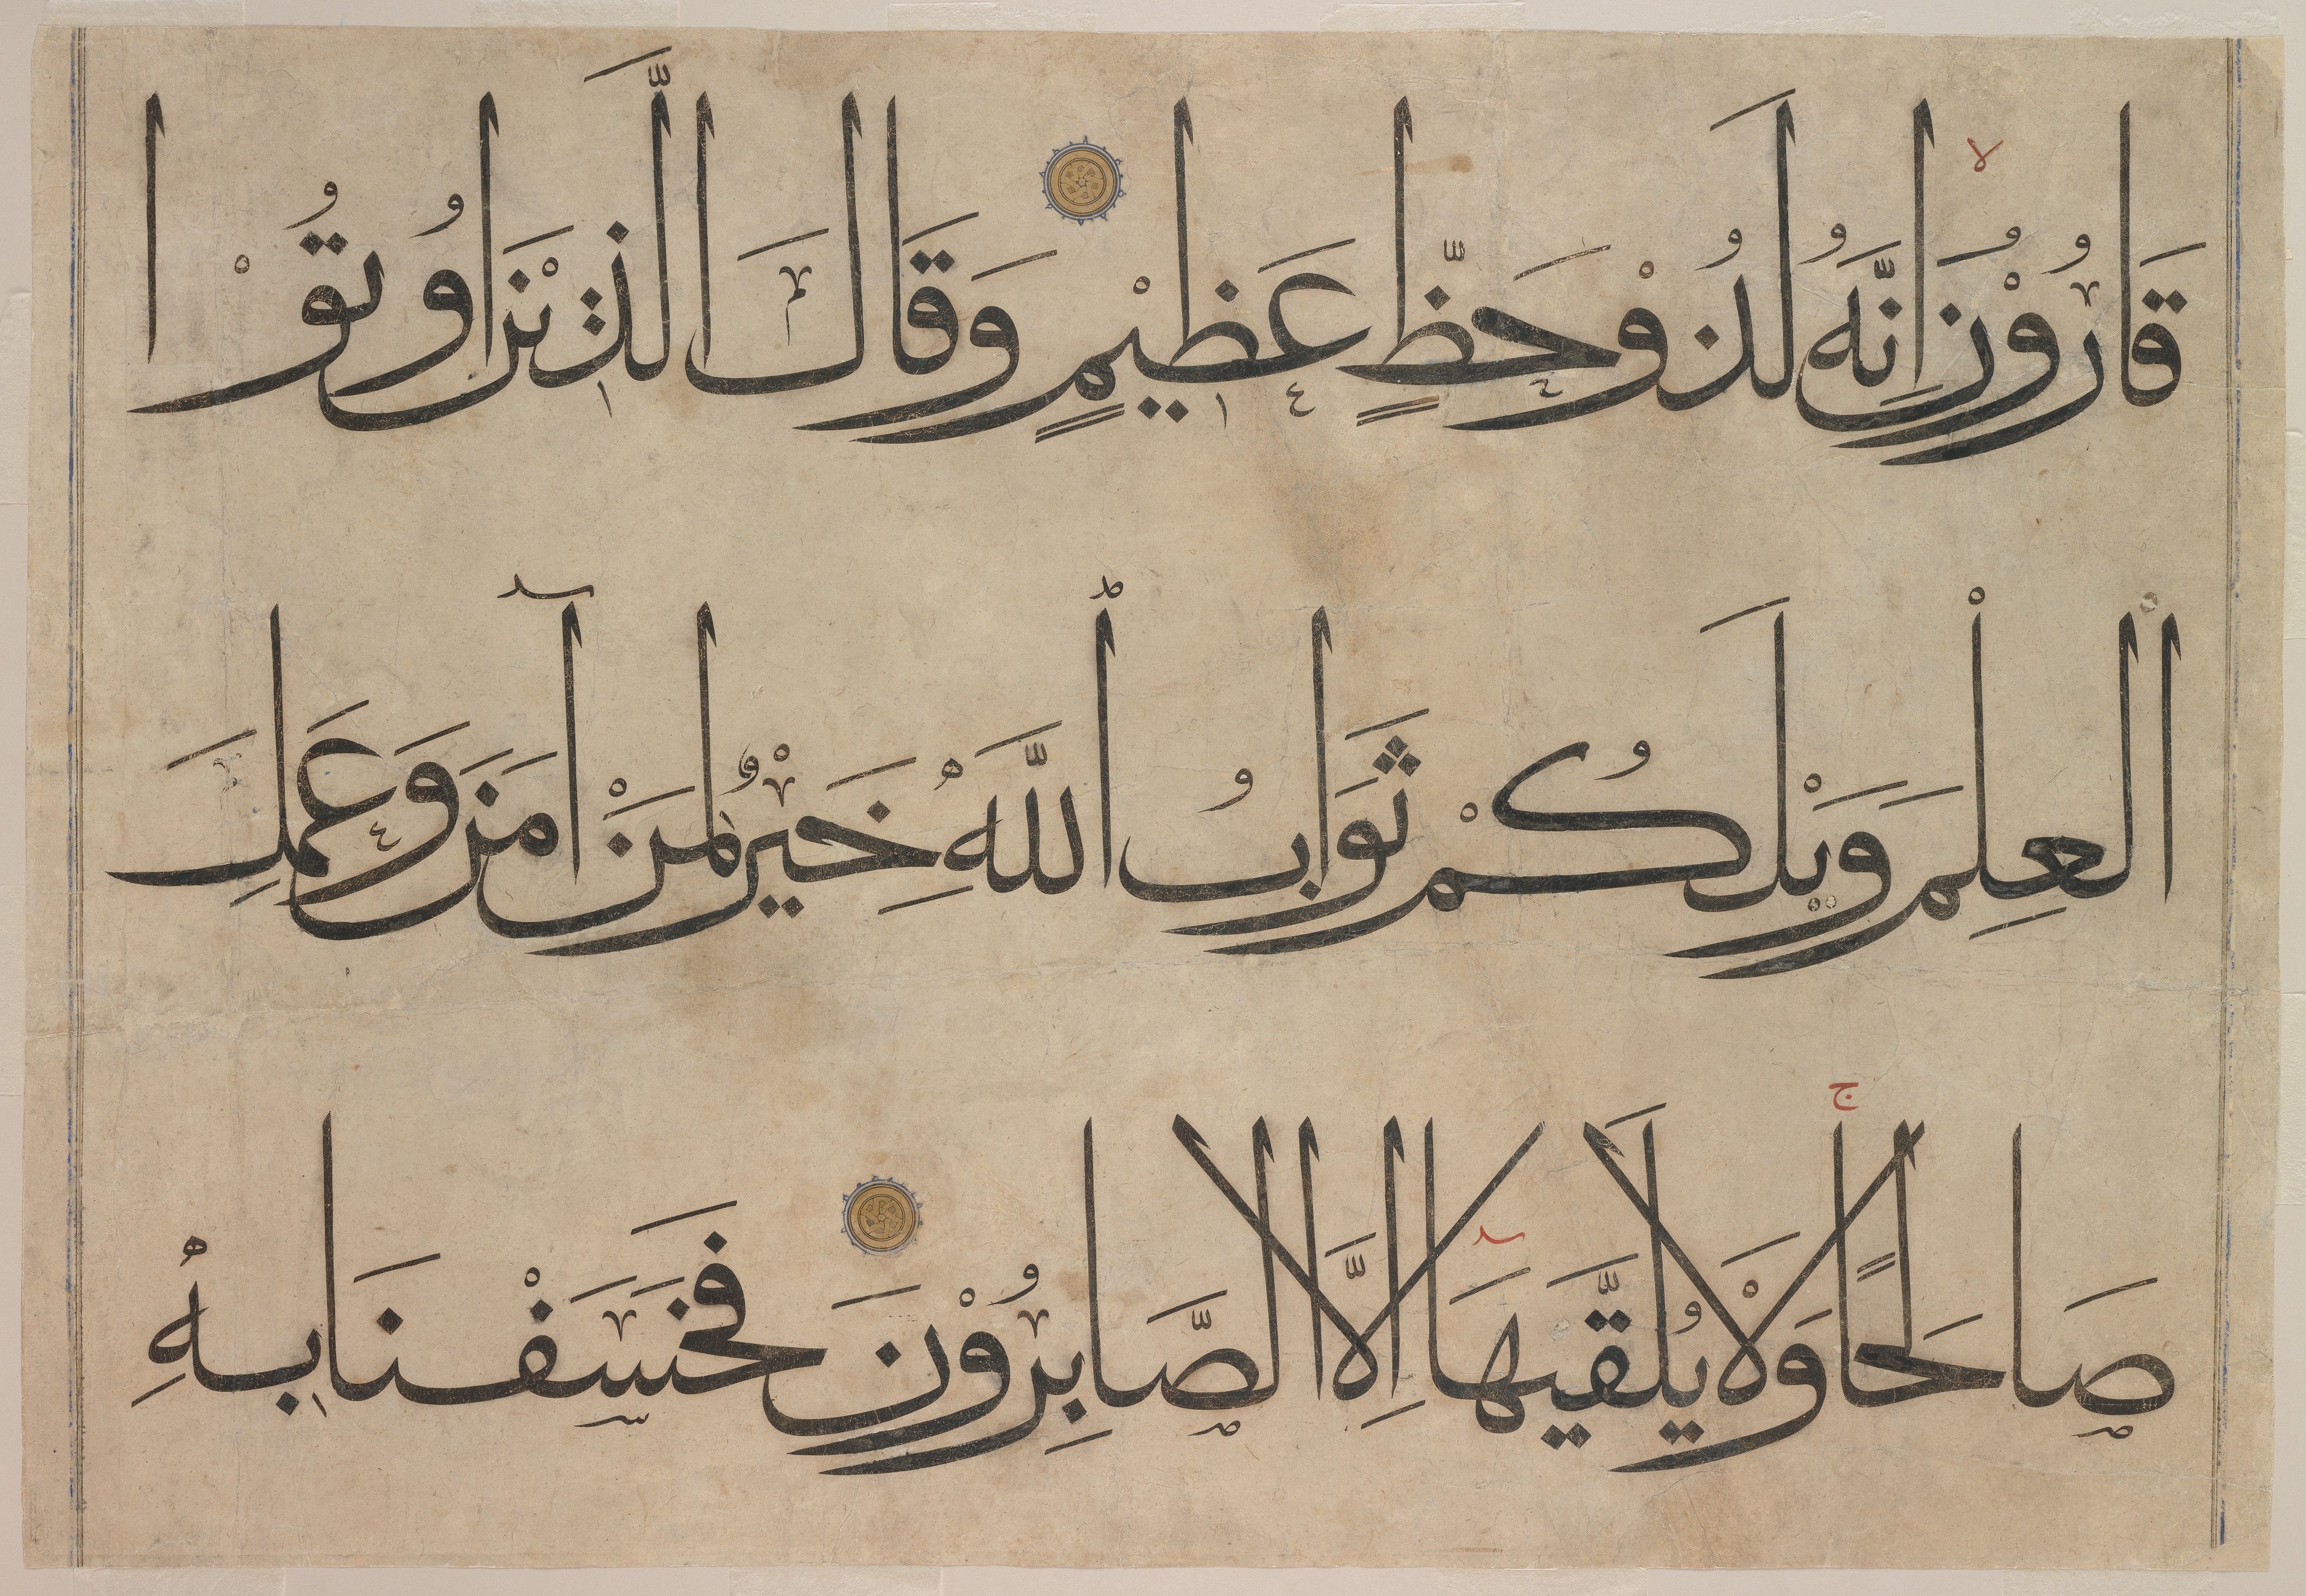 قَارُوْنَ اِنَّهُ لَذُوْ حَظٍّ عَظِيْمٍ وَقَالَ الَّذِيْنَ اُوتُوْا
الْعِلْمَ وَيْلَكُمْ ثَوَابُ اللَّهِ خَيْرٌ لِمَنْ آمَنَ وَعَمِلَ
صَالِحًا وَلَا يُلَقَّيهَا اِلَّا الصَّابِرُوْنَ فَخَسَفْنَا بِهِ